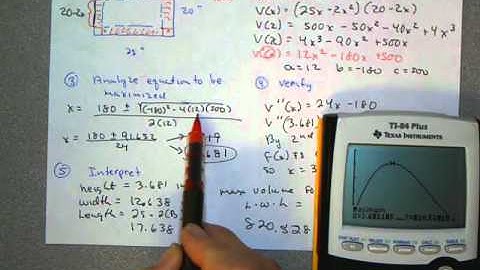 20-2x
20"
25"
V(x) = (25x - 2x²)(20-2x)
V(x) = 500x - 50x² - 40x² + 4x³
V(x) = 4x³ - 90x² + 500x
V'(x) = 12x² - 180x + 500
a=12 b=-180 c=500
③ Analyze equation to be
maximized
x = 180 ± √(-180)² - 4(12)(500)
2(12)
x = 180 ± 91.652
24
3.681
④ Verify
V''(x) = 24x - 180
V''(3.681)
By 2nd
so x = 3
⑤ Interpret
height = 3.681
width = 12.638
Length = 25 - 2(3.
17.638
max volume
l·w·h =
820.528
TI-84 Plus
TEXAS INSTRUMENTS
Maximum